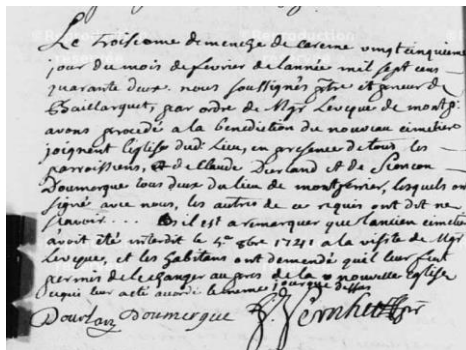 Le troisieme dimenche de careme vingt cinquieme
jour de mois de fevrier de lannée mil sept cens
quarante deux. nous soussignés ptre et prieur de
Baillarguet, par ordre de Mgr Leveque de montp.
avons procedé a la benediction du nouveau cimetiere
joignent leglise dud. Lieu, en presence de tous les
parroissiens, et de Claude Durland et de
Doumergue tous deux du lieu de montferrier, lesquels ont
signé avec nous, les autres de ce requis ont dit ne
sçavoir.... il est a remarquer que lancien cimetiere
avoit été interdit le 4e 9bre 1741 a la visite de Mgr
Leveque, et les habitans ont demendé quil leur fut
permis de le changer aupres de la nouvelle Eglise
cequi leur a été acordé le meme jour que dessus
Dourlan Doumergue